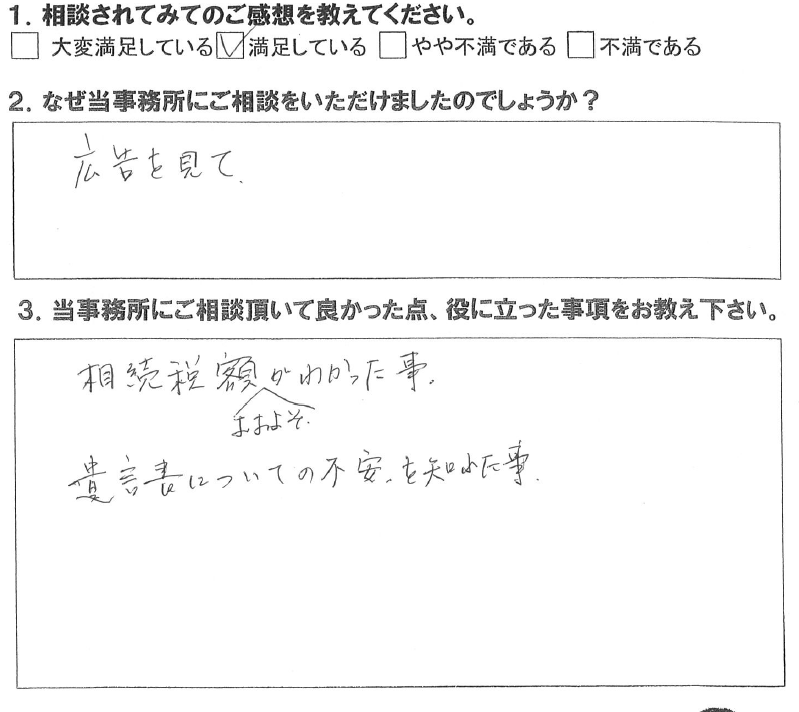 1. 相談されてみてのご感想を教えてください。
□ 大変満足している ☑ 満足している □ やや不満である □ 不満である
2. なぜ当事務所にご相談をいただけましたのでしょうか?
広告を見て.
3. 当事務所にご相談頂いて良かった点、役に立った事項をお教え下さい。
相続税額がわかった事.
おおよそ.
遺言書についての不安.を知れた事.